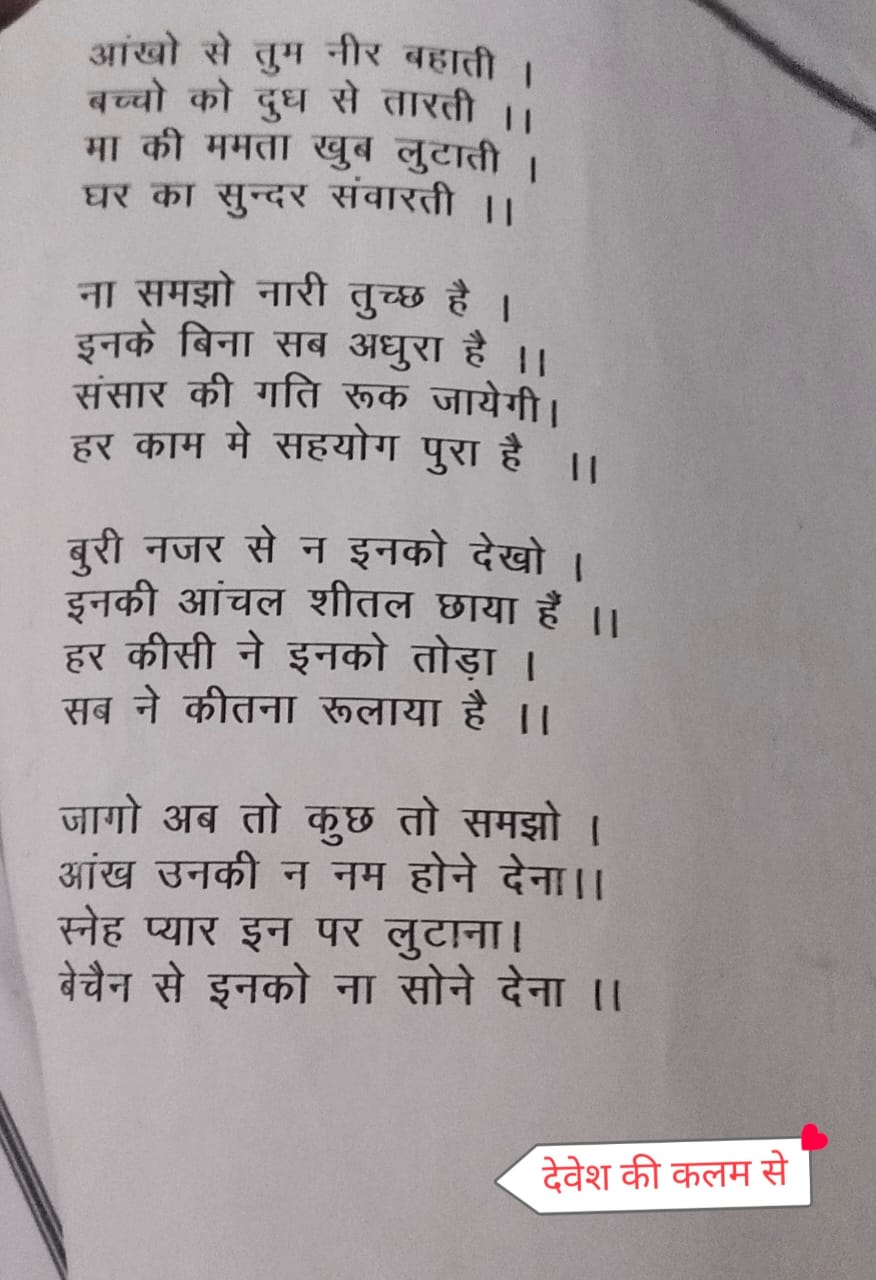 आंखो से तुम नीर बहाती ।
बच्चो को दुध से तारती ।।
मा की ममता खुब लुटाती ।
घर का सुन्दर संवारती ।।
ना समझो नारी तुच्छ है ।
इनके बिना सब अधुरा है ।।
संसार की गति रूक जायेगी।
हर काम मे सहयोग पुरा है ।।
बुरी नजर से न इनको देखो ।
इनकी आंचल शीतल छाया हैं ।।
हर कीसी ने इनको तोड़ा ।
सब ने कीतना रूलाया है ।।
जागो अब तो कुछ तो समझो ।
आंख उनकी न नम होने देना।।
स्नेह प्यार इन पर लुटाना।
बेचैन से इनको ना सोने देना ।।
देवेश की कलम से